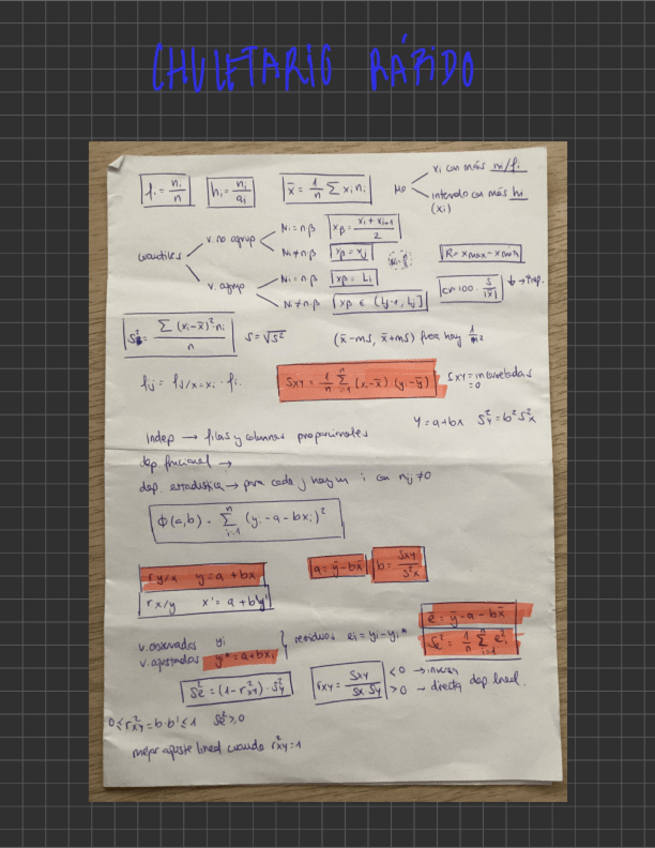 CHULETARIO RÁPIDO
fi = ni/n    hi = ni/ai    x̄ = 1/n Σ xi ni    Mo    xi con más ni/fi
intervalo con más hi (xi)
cuantiles    v. no agrup    Ni = n·β    xβ = (xi + xi+1)/2
Ni ≠ n·β    xβ = xj    R = xmax - xmin
v. agrup    Ni = n·β    xβ = Li    CV = 100 · S/|x̄|
Ni ≠ n·β    xβ ∈ (Lj-1, Lj]
S² = Σ (xi - x̄)² ni / n    S = √S²    (x̄ - mS, x̄ + mS) fuera hay 1/m²
fij = fj/x=xi · fi.    Sxy = 1/n Σ (xi - x̄) (yi - ȳ)    Sxy = incorreladas = 0
Y = a + bx    S²y = b² S²x
Indep → filas y columnas proporcionales
dep funcional →
dep. estadística → para cada j hay un i con nij ≠ 0
Φ(a,b) = Σ (yi - a - bxi)²
r y/x    y = a + bx    a = ȳ - bx̄    b = Sxy/S²x
r x/y    x' = a + b'y'
ē = ȳ - a - bx̄
v. observados    yi
v. ajustados    y* = a + bxi    residuos ei = yi - yi*    Se² = 1/n Σ ei²
Se² = (1 - r²xy) · S²y    rxy = Sxy / Sx Sy    <0 → inversa
>0 → directa    dep lineal.
0 ≤ r²xy = b·b' ≤ 1    Se² ≥ 0
mejor ajuste lineal cuando r²xy = 1